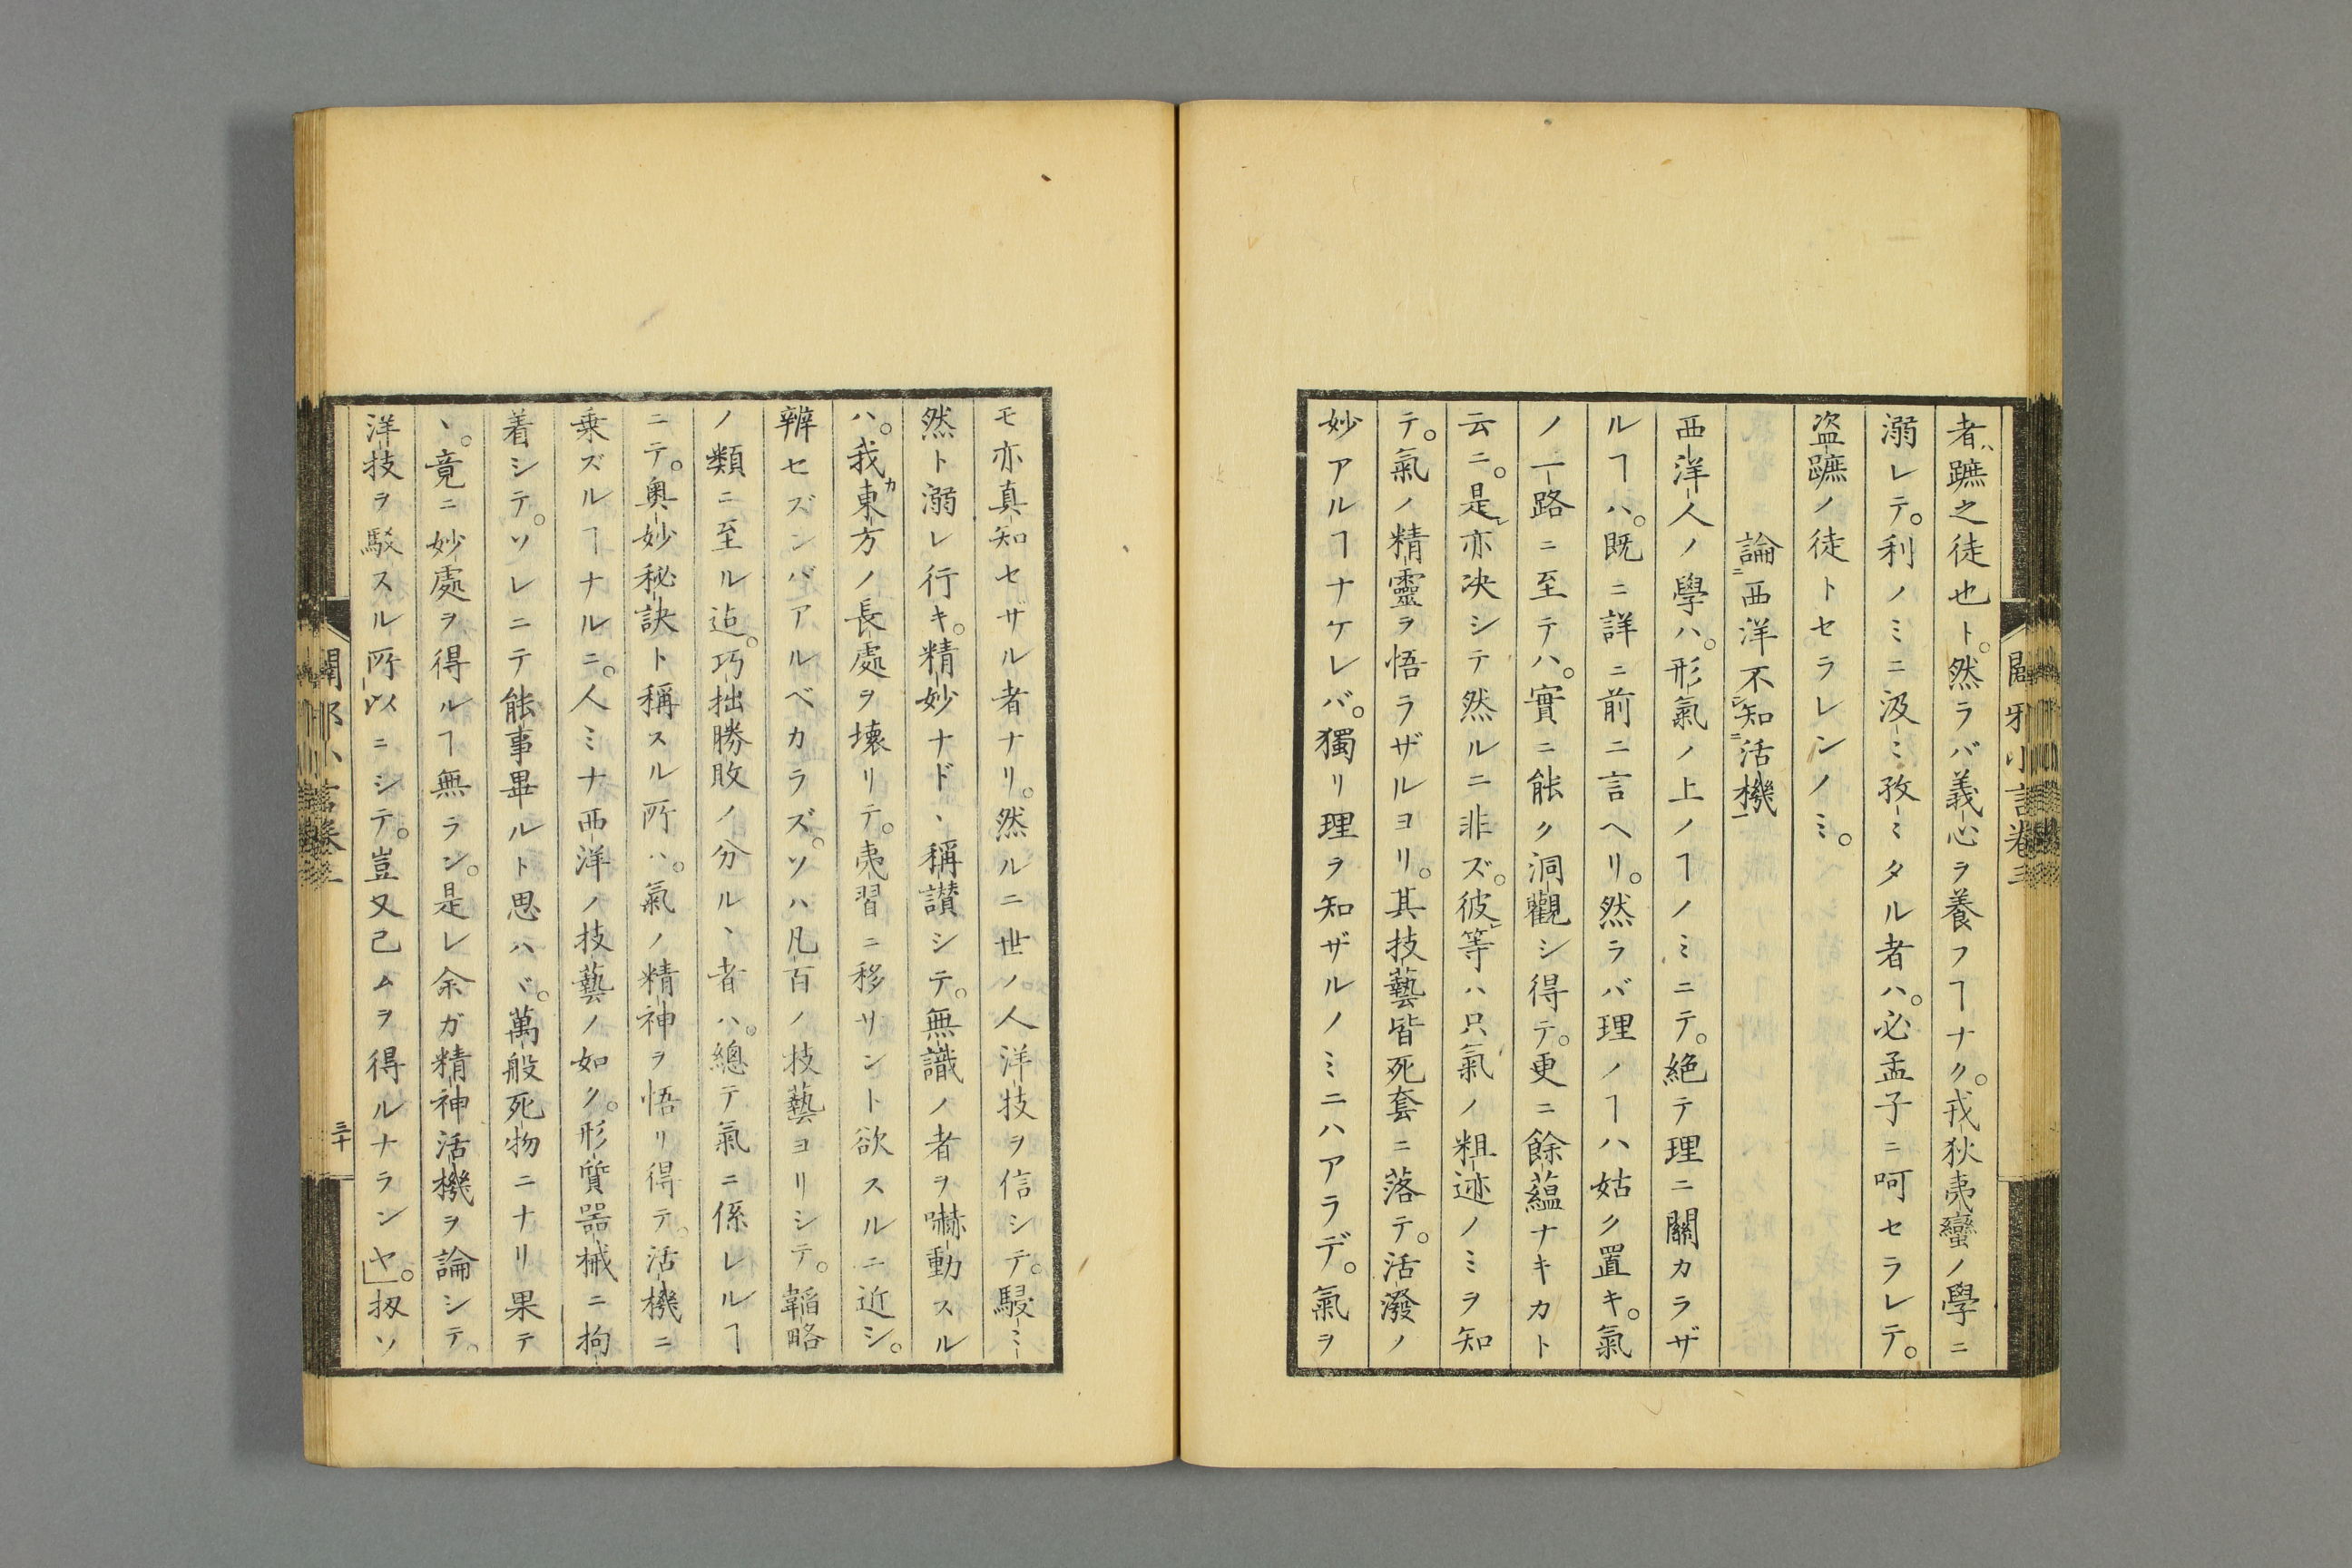 闢邪小言卷三
者ハ蹠之徒也ト。然ラバ義心ヲ養フヿナク。戎狄夷蠻ノ學ニ
溺レテ。利ノミニ汲ミ孜ミタル者ハ。必孟子ニ呵セラレテ。
盗蹠ノ徒トセラレンノミ。
論㆘西洋不㆑知㆓活機㆒
西洋人ノ學ハ。形氣ノ上ノヿノミニテ。絶テ理ニ關カラザ
ルヿハ。既ニ詳ニ前ニ言ヘリ。然ラバ理ノヿハ姑ク置キ。氣
ノ一路ニ至テハ。實ニ能ク洞觀シ得テ。更ニ餘蘊ナキカト
云ニ。是レ亦决シテ然ルニ非ズ。彼レ等ハ只氣ノ粗迹ノミヲ知
テ。氣ノ精靈ヲ悟ラザルヨリ。其技藝皆死套ニ落テ。活潑ノ
妙アルヿナケレバ。獨リ理ヲ知ザルノミニハアラデ。氣ヲ
モ亦真知セザル者ナリ。然ルニ世ノ人洋技ヲ信シテ。駸ミ
然ト溺レ行キ。精妙ナド、稱讃シテ。無識ノ者ヲ嚇動スル
ハ。我カ東方ノ長處ヲ壞リテ。夷習ニ移サント欲スルニ近シ。
辨セズンバアルベカラズ。ソハ凡百ノ技藝ヨリシテ。韜略
ノ類ニ至ル迠。巧拙勝敗ノ分ル、者ハ。總テ氣ニ係レルヿ
ニテ。奥妙秘訣ト稱スル所ハ。氣ノ精神ヲ悟リ得テ。活機ニ
乗ズルヿナルニ。人ミナ西洋ノ技藝ノ如ク。形質器械ニ拘
着シテ。ソレニテ能事畢ルト思ハヾ。萬般死物ニナリ果テ
、。竟ニ妙處ヲ得ルヿ無ラン。是レ余ガ精神活機ヲ論シテ。
洋技ヲ駁スル所以ニシテ。豈又已ムヲ得ルナランヤ。」扨ソ
闢邪小言卷三
三十